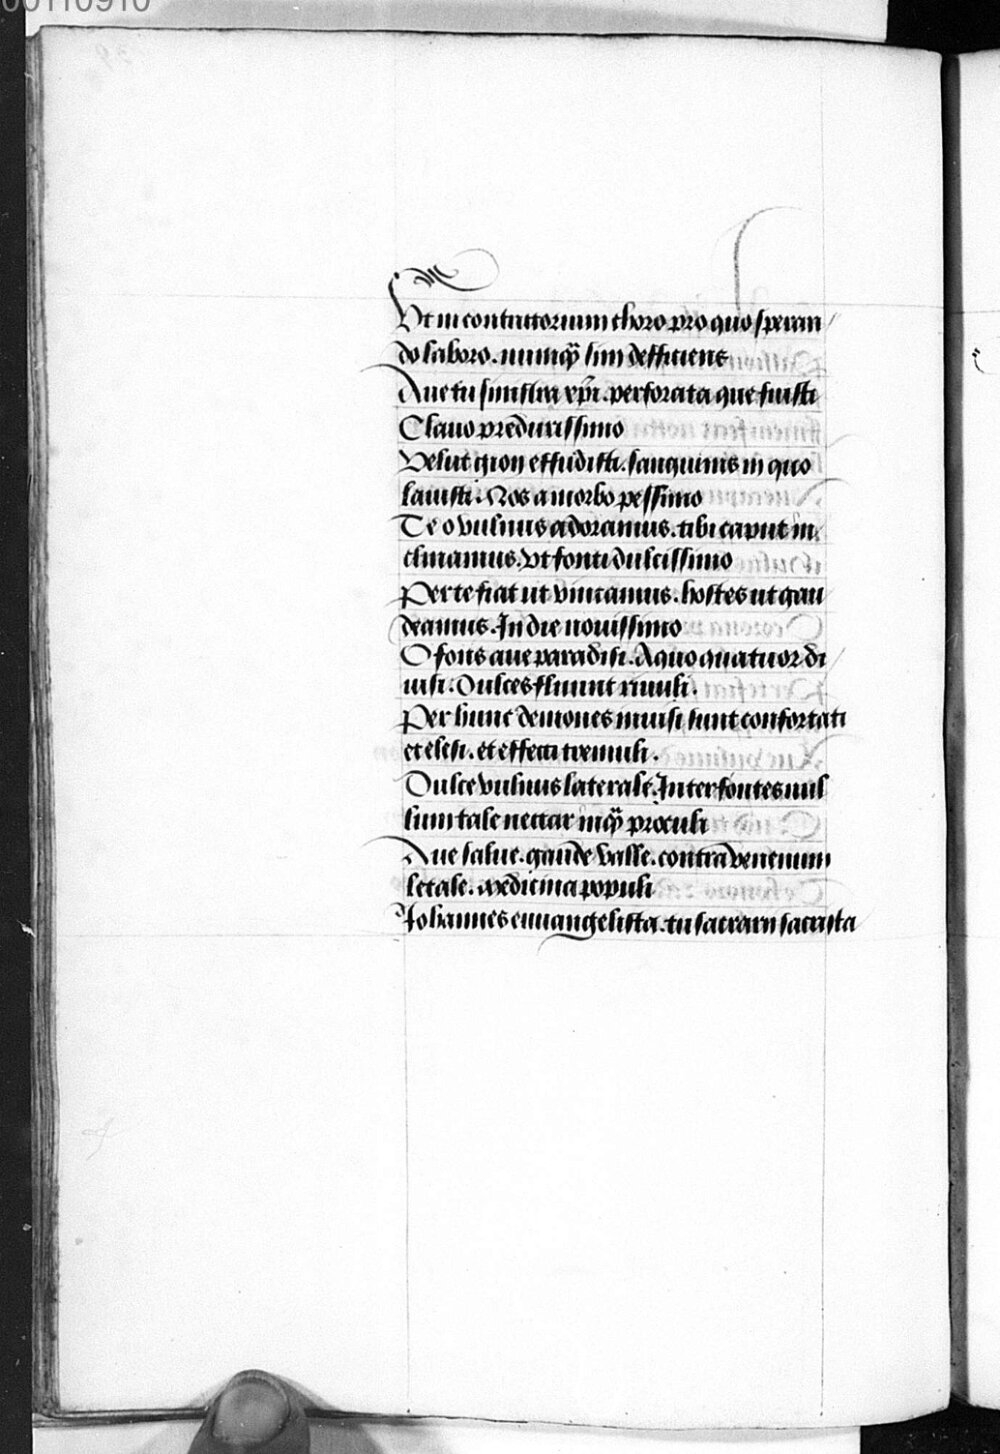 00110910
Ut in contuitorium choro pro quo speran
do laboro. numq̃ sim defficiens
Aue tu sinistra xp̃i. perforata que fuisti
Clauo predurissimo
Velut gion effudisti. sanguinis in quo
lauisti. Nos a morbo pessimo
Te o vulnus adoramus. tibi caput in
clinamus. Vt fonti dulcissimo
Per te fiat ut vincamus. hostes ut gau
deamus. In die nouissimo
O fons aue paradisi. A quo quatuor di
uisi. Dulces fluunt riuuli.
Per hunc demones inuisi sunt confortati
et elesi. et effecti tremuli.
Dulce vulnus laterale. Inter fontes nul
lum tale nectar inq̃ proculi
Aue salue. gaude valle. contra venenum
letale. medicina populi
Johannes euuangelista. tu sacrarii sacrista